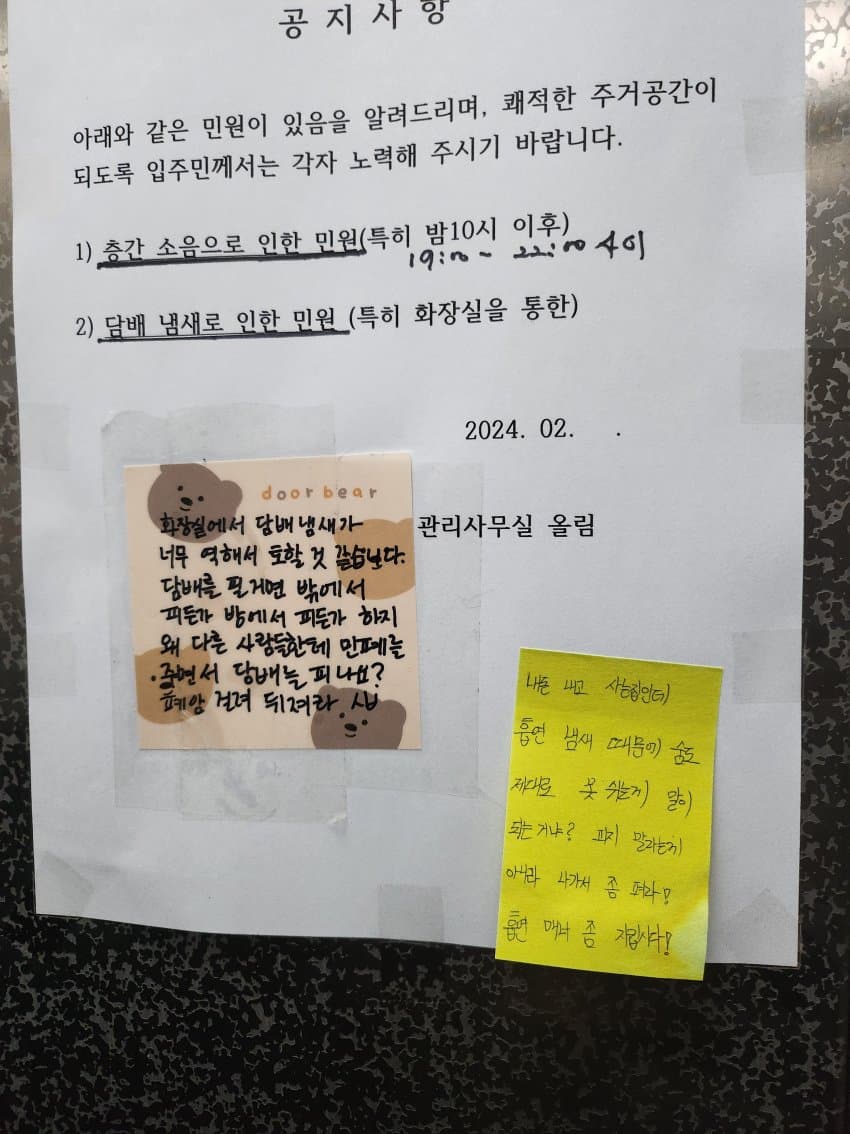 공 지 사 항
아래와 같은 민원이 있음을 알려드리며, 쾌적한 주거공간이
되도록 입주민께서는 각자 노력해 주시기 바랍니다.
1) 층간 소음으로 인한 민원(특히 밤10시 이후)
19:00~ 22:00 사이
2) 담배 냄새로 인한 민원 (특히 화장실을 통한)
2024. 02. .
관리사무실 올림
door bear
화장실에서 담배냄새가
너무 역해서 토할 것 같습니다.
담배를 필거면 밖에서
피든가 방에서 피든가 하지
왜 다른 사람들한테 민폐를
주면서 담배를 피나요?
폐암 걸려 뒤져라
내돈 내고 사는집인데
흡연 냄새 때문에 숨도
제대로 못 쉬는게 말이
되는거냐? 피지 말라는게
아니라 나가서 좀 펴라!
흡연 매너 좀 지킵시다!